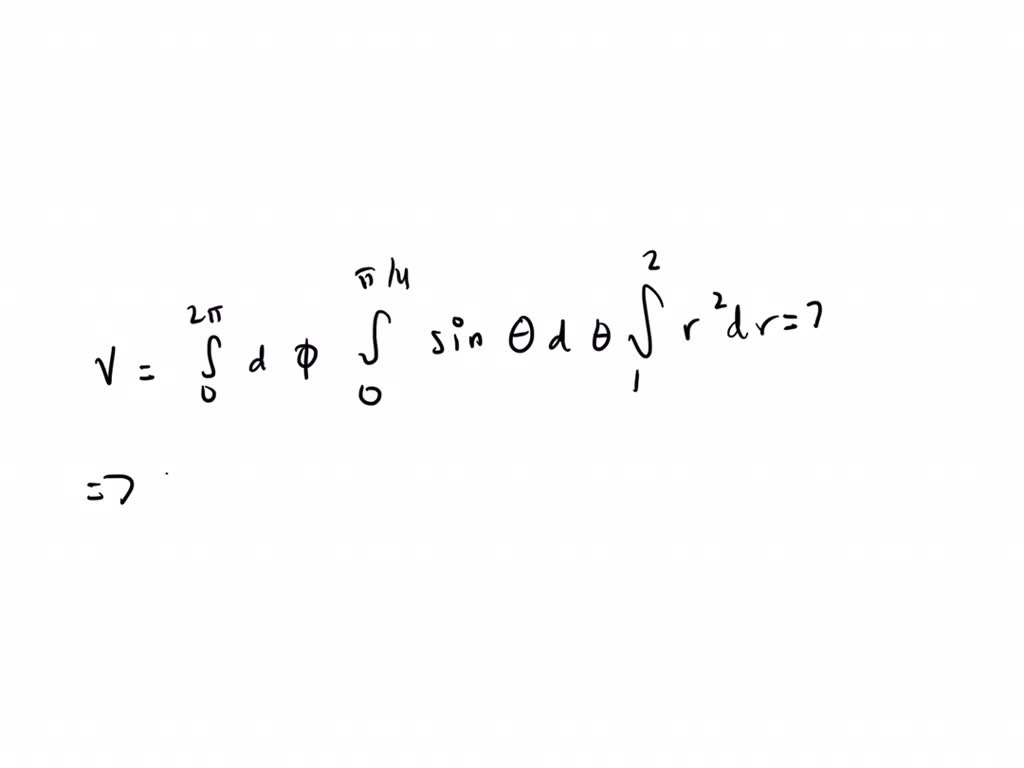 V = ∫₀^{2π} d ϕ ∫₀^{π/4} sin θ d θ ∫₁² r² dr =>
=>